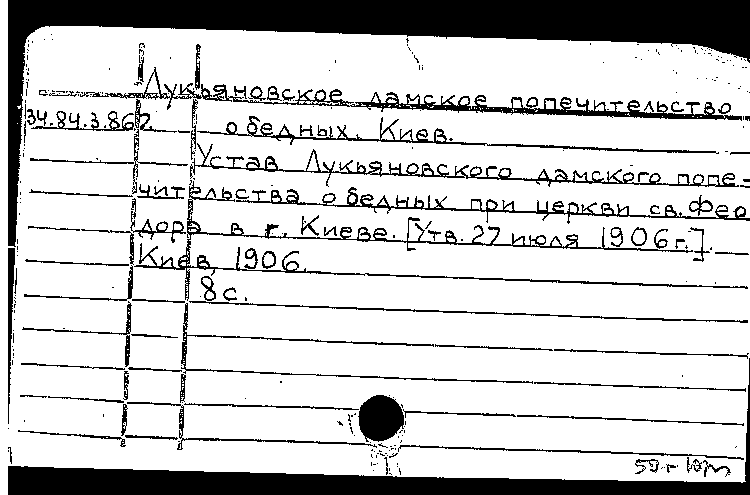 Лукьяновское дамское попечительство
34.84.3.862 о бедных. Киев.
Устав Лукьяновского дамского попе-
чительства о бедных при церкви св. Фео
дора в г. Киеве. [Утв. 27 июля 1906 г.].
Киев, 1906.
8 с.